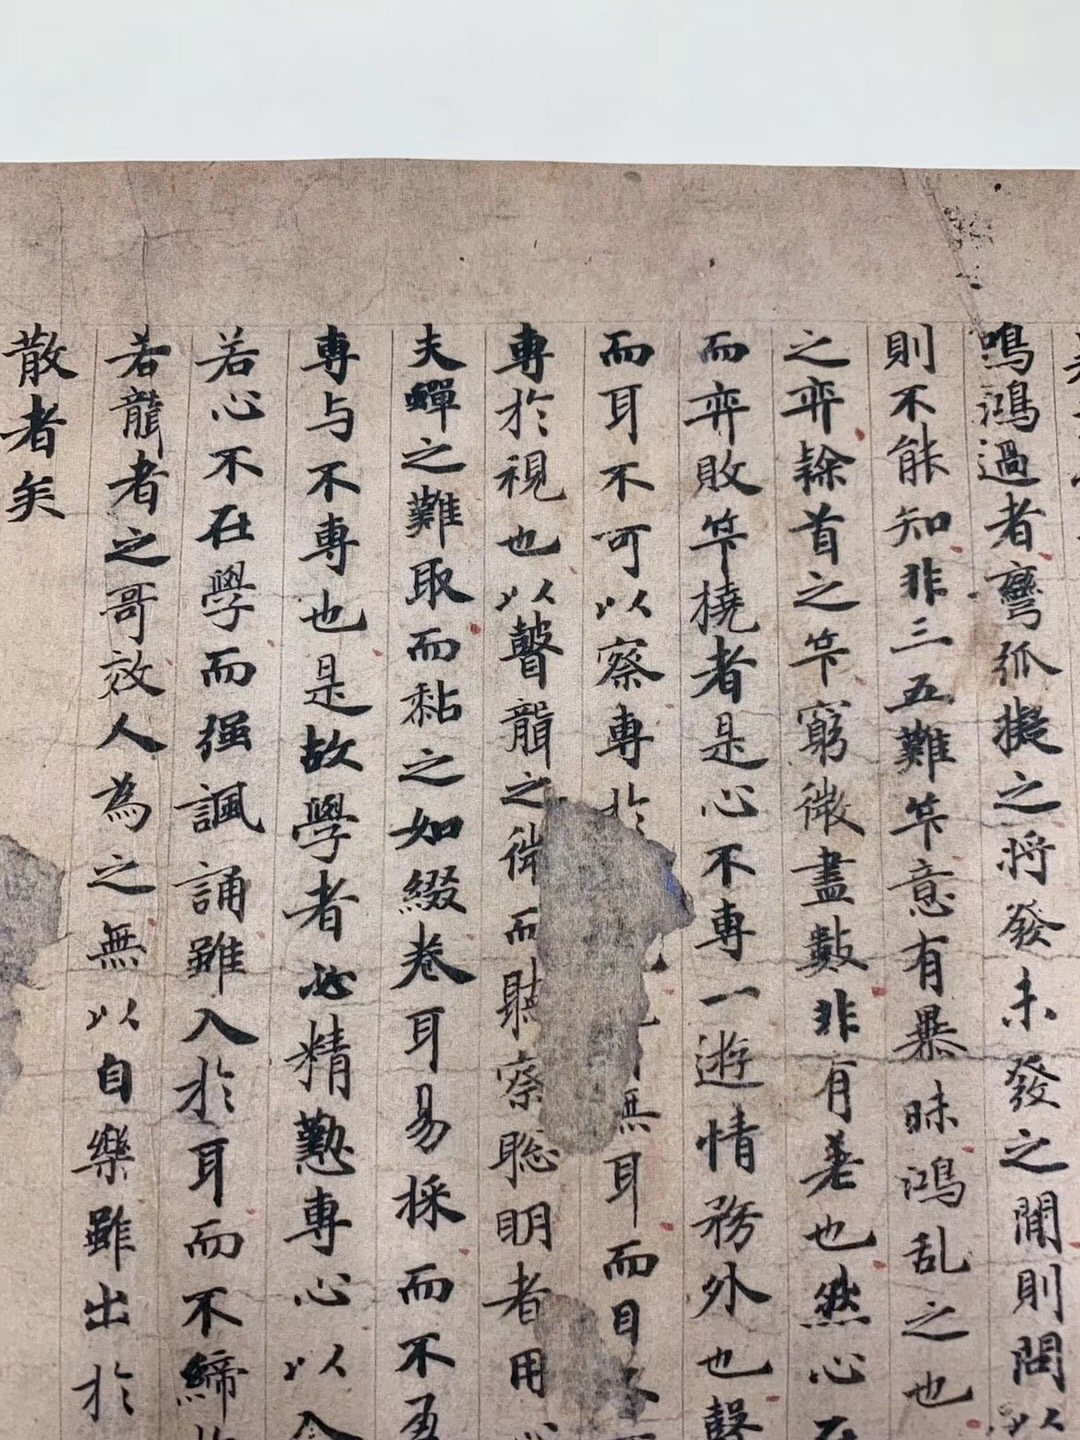 鳴鴻過者彎弧擬之將發未發之間則問以
則不能知非三五難筭意有暴昧鴻乱之也
之弈隸首之筭窮微盡數非有差也然心在
而弈敗筭撓者是心不專一遊情務外也瞽
而耳不可以察專於無耳而目
專於視也以瞽聾之微而聽察聡明者用心
夫蟬之難取而黏之如綴卷耳易採而不
專与不專也是故學者必精懃專心以入
若心不在學而强諷誦雖入於耳而不締
若聾者之哥效人為之無以自樂雖出於
散者矣